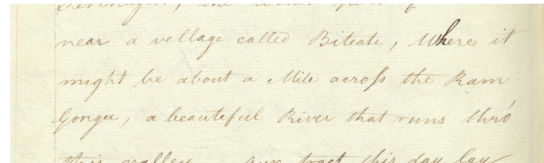 near a vellage called Biteate, Where it
might be about a Mile acroſs the Ram
Gonga, a beauteful River that runs thro'
this valley our tract this day lay